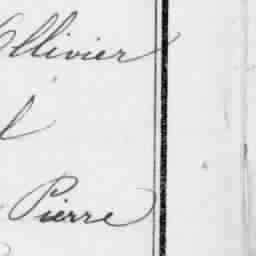 Ollivier
Pierre